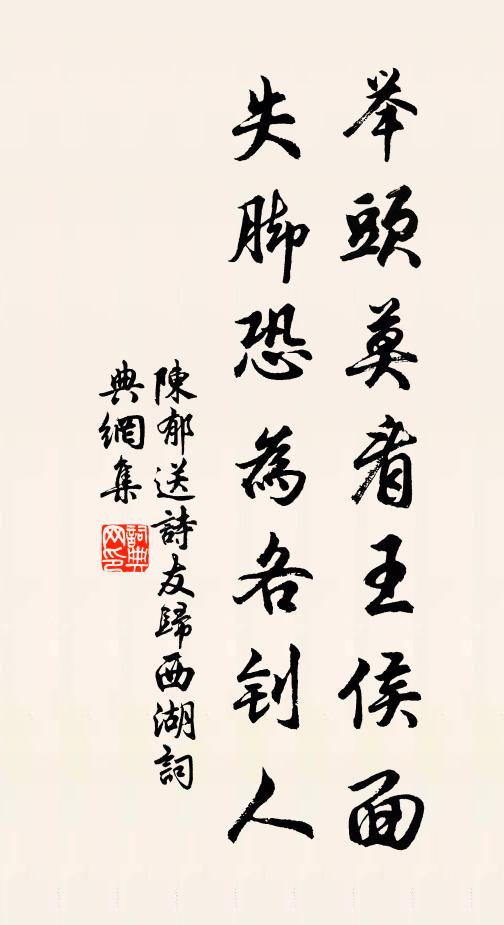 举頭莫看王侯面
失脚恐為名钊人
陳郁送詩友歸西湖詞
典網集
詞典
网印